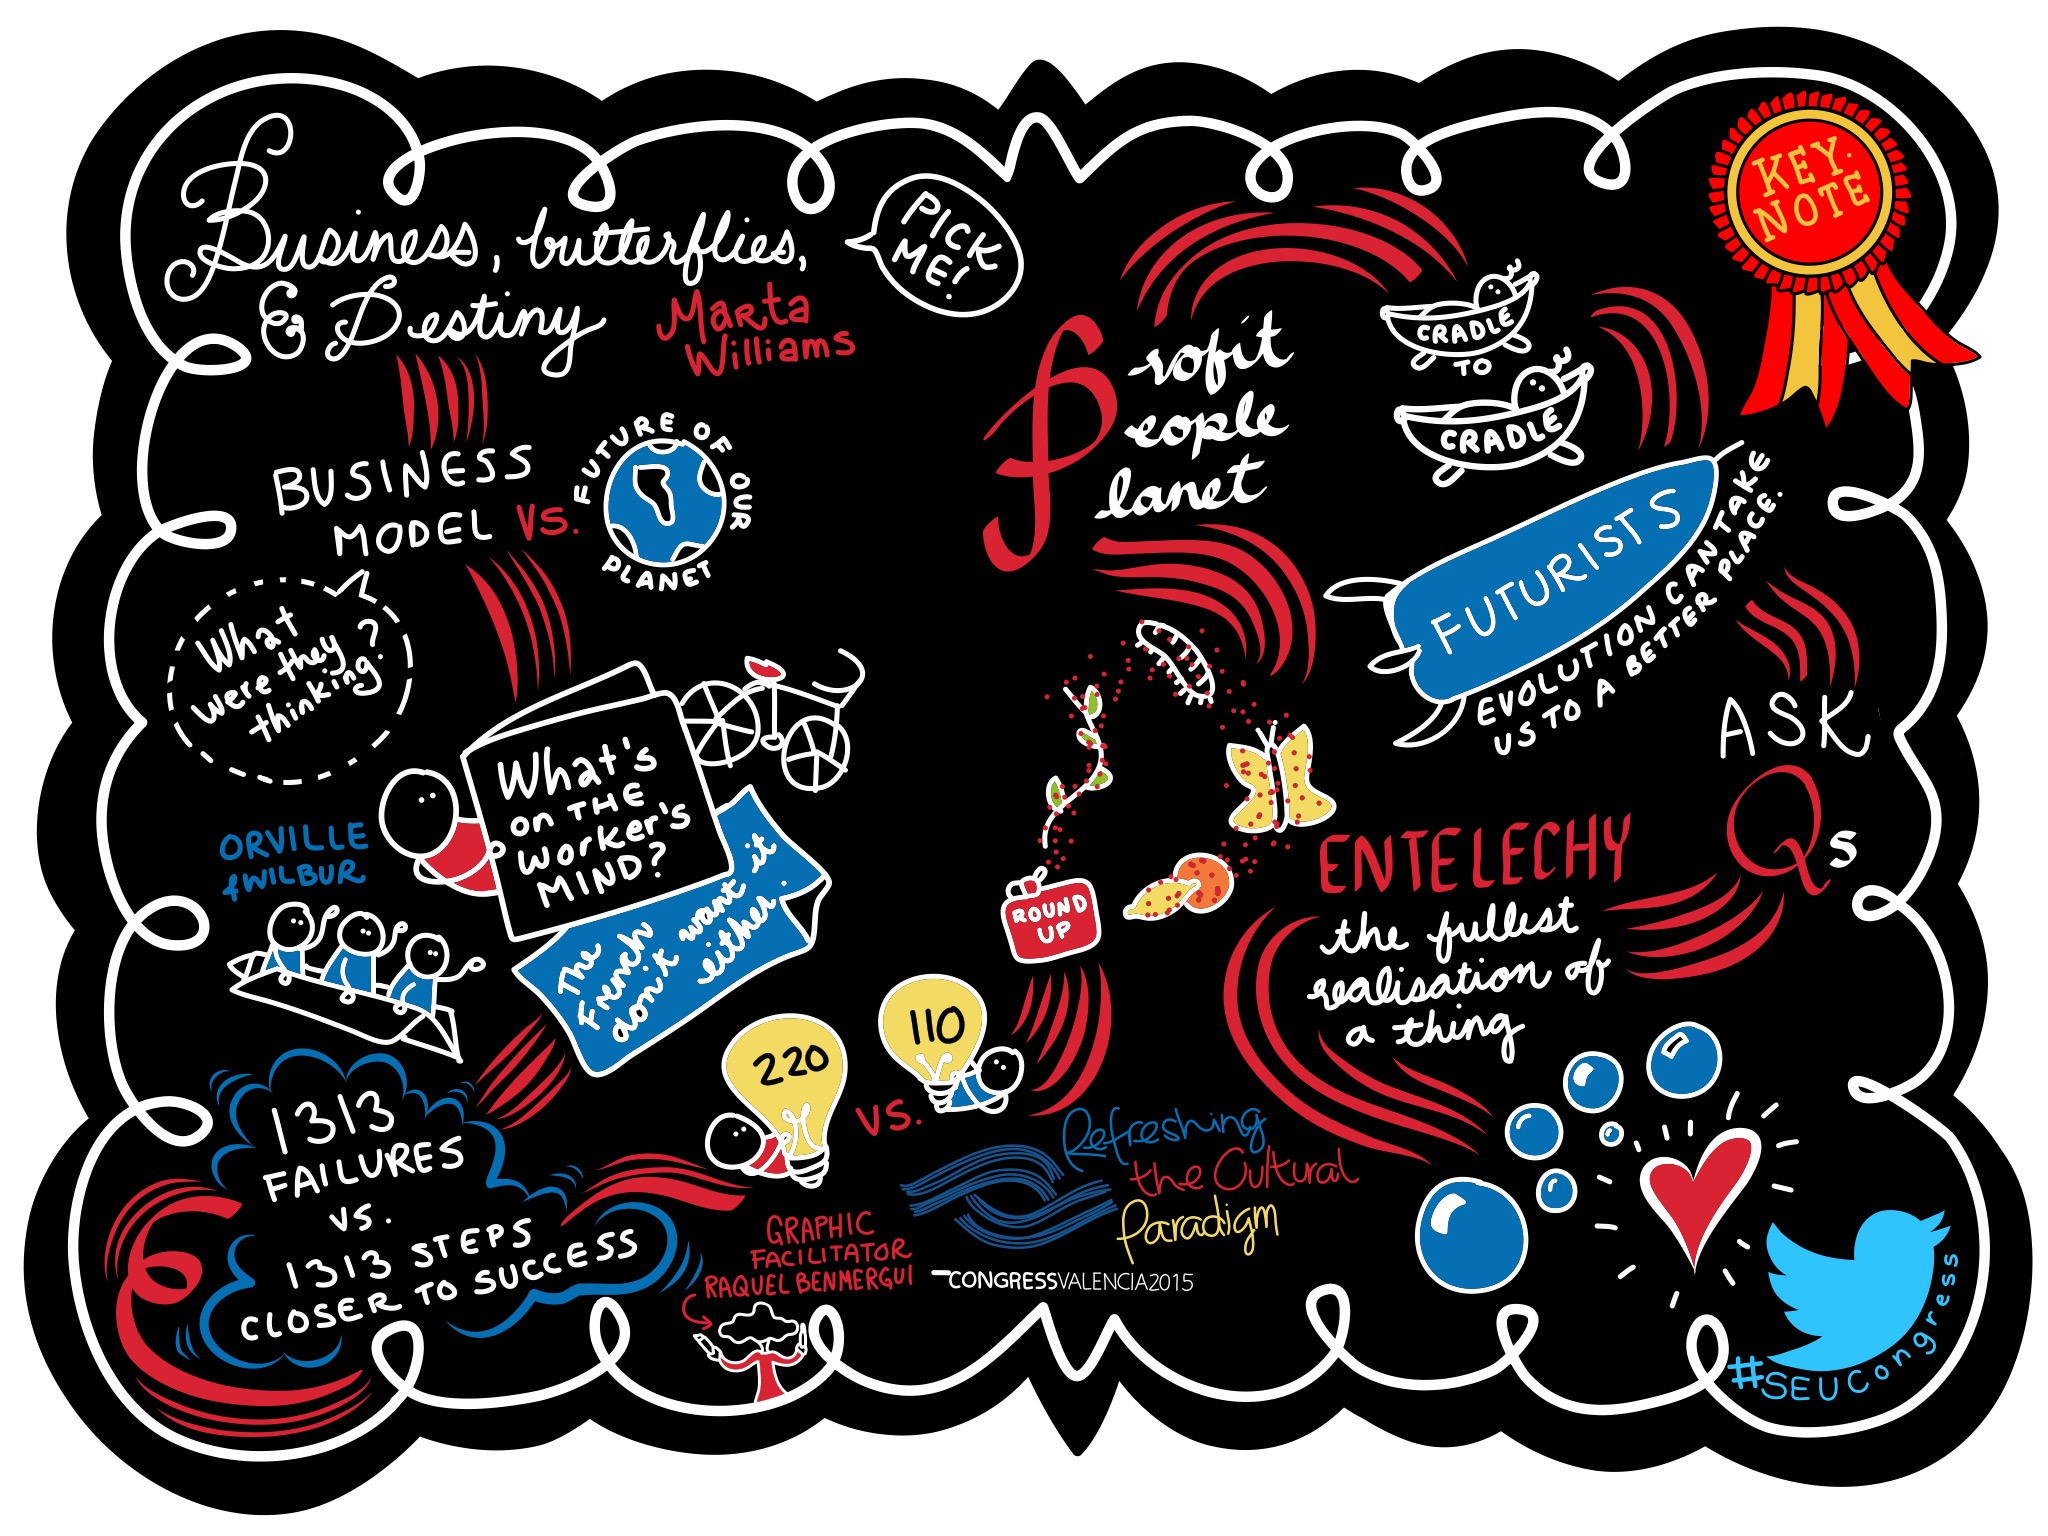 Business, butterflies,
& Destiny
Marta
Williams
PICK
ME!
KEY.
NOTE
BUSINESS
MODEL VS.
FUTURE OF OUR
PLANET
What
were they
thinking?
What's
on THE
worker's
MIND?
The
French
don't want it
either.
ORVILLE
& WILBUR
1313
FAILURES
VS.
1313 STEPS
CLOSER TO SUCCESS
220
VS.
110
Profit
eople
lanet
CRADLE
TO
CRADLE
FUTURISTS
EVOLUTION CAN TAKE
US TO A BETTER PLACE.
ASK
Qs
ROUND
UP
ENTELECHY
the fullest
realisation of
a thing
Refreshing
the Cultural
Paradigm
CONGRESSVALENCIA2015
GRAPHIC
FACILITATOR
RAQUEL BENMERGUI
#SEUCongress